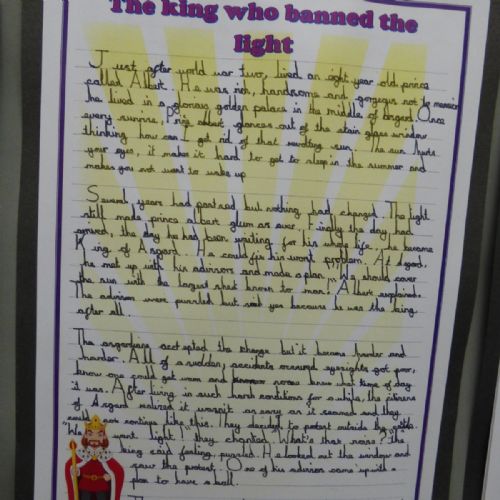 The king who banned the
light
Just after world war two, lived an eight year old prince
called Albert. He was rich, handsome and gorgeus not to mension
he lived in a glorious golden palace in the middle of asgard. Once
every sunrise, Prince albert glances out of the stain glass window
thinking how can I get rid of that revolting sun. The sun hurts
your eyes, it makes it hard to get to sleep in the summer and
makes you not want to wake up
Several years had past but nothing had changed. The light
still made prince albert glum as ever. Finally the day had
arrived, the day he had been waiting for his whole life. He became
King of Asgard. He could fix his worst problem. At dgard,
he met up with his advisors and made a plan. "We should cover
the sun with the largest sheet known to man." Albert explained.
The advisors were puzzled but said yes because he was the king
after all.
The asgardians accepted the change but it became harder and
harder. All of a sudden, accidents occured eyesights got poor,
know one could get warm and knew what time of day
it was. After living in such harsh conditions for a while, the citizens
of Asgard realized it wasn't as easy as it seemed and they
could not continue like this. They decided to protest outside the
"We want light" they chanted. What's that noise? The
king said feeling puzzled. He looked out the window and
saw the protest. One of his advisors came up with a
plan to have a ball.